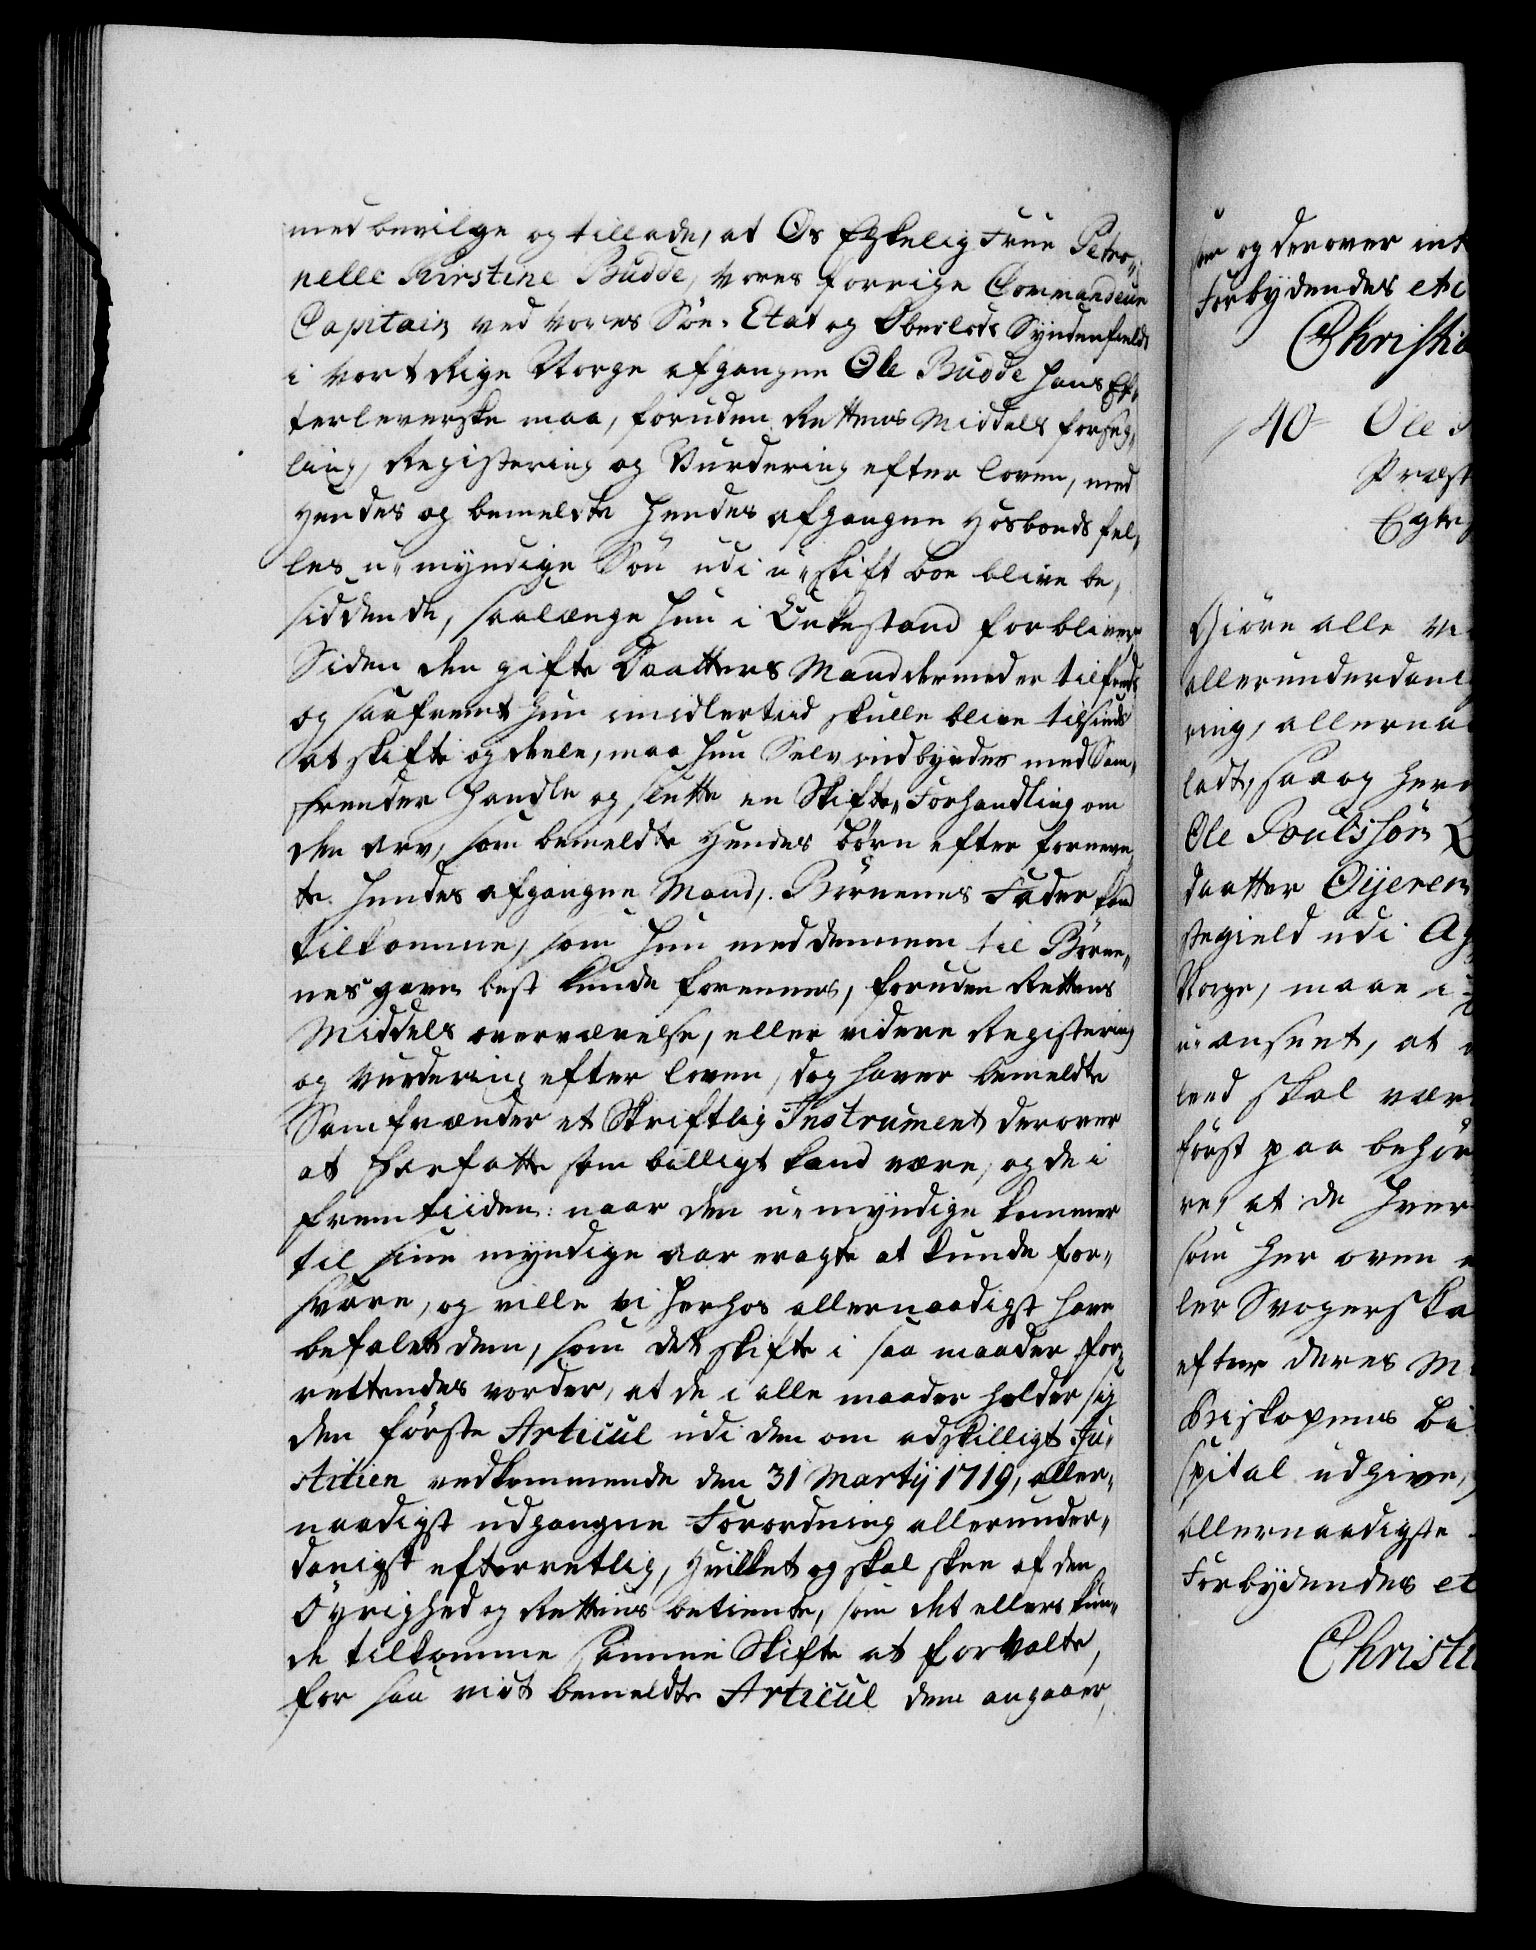 med bevilge og tillade, at Os Elskelig Frue Petro-
nelle Kirstine Budde, Vores forrige Commandeur
Capitain ved Vores Söe-Etat og Oberlods Syndenfields
i Vort Rige Norge afgangne Ole Budde hans Ef-
terleverske maa, foruden Rettens Middels forseg-
ling, Registering og Vurdering efter loven, med
Hendes og bemelte hendes afgangne Hosbonds fel-
les u-myndige Sön udi u-skift boe blive be-
siddende, saalænge hun i Enkestand forbliver,
Siden den gifte Daatters Mand dermed er tilfreds
og saafremt hun imidlertiid skulle blive tilsinds
at skifte og deele, maa hun Selv indbyrdes med Sam-
frender handle og slutte en Skifte-Forhandling om
den arv, som bemeldte Hendes börn efter fornevn-
te hendes afgangne Mand, Börnenes Fader kand
tilkomme, som hun med dennem til Börne-
nes gavn best kunde forrenes, foruden Rettens
Middels overværelse, eller videre Registering
og Vurdering efter loven, dog haver bemeldte
Samfrænder et Skriftlig Instrument derover
at forfatte som billigt kand være, og de i
fremtiiden: naar den u-myndige kommer
til sine myndige aar eragte at kunde for-
svare, og ville vi herhos allernaadigst have
befalet dem, som det skifte i saa maader for-
rettendes vorder, at de i alle maader holder sig
den förste Articul udi den om adskilligt Ju-
stitien vedkommende den 31 Martij 1719, aller-
naadigst udgangne Forordning allerunder-
danigst efterretlig, Hvilket og skal skee af den
Öyrighed og Rettens betiente, som det ellers kun-
de tilkomme samme Skifte at forvalte,
for saa vidt bemeldte Articul dem angaaer,
og derover
Forbydendes etc
Christi
40 Ole
Præst
Egte
Giöre alle
allerunderdani
ring, allerna
ladt, saa og her
Ole Poulssön
daatter Öijeren
stegield udi Ag
Norge, maae i
u-anseet, at
leed skal vær
först paa behör
re, at de hver
som her oven
ler Svogerska
efter deres
Biskopens
spital udgive,
allernaadigste
Forbydendes et
Christi